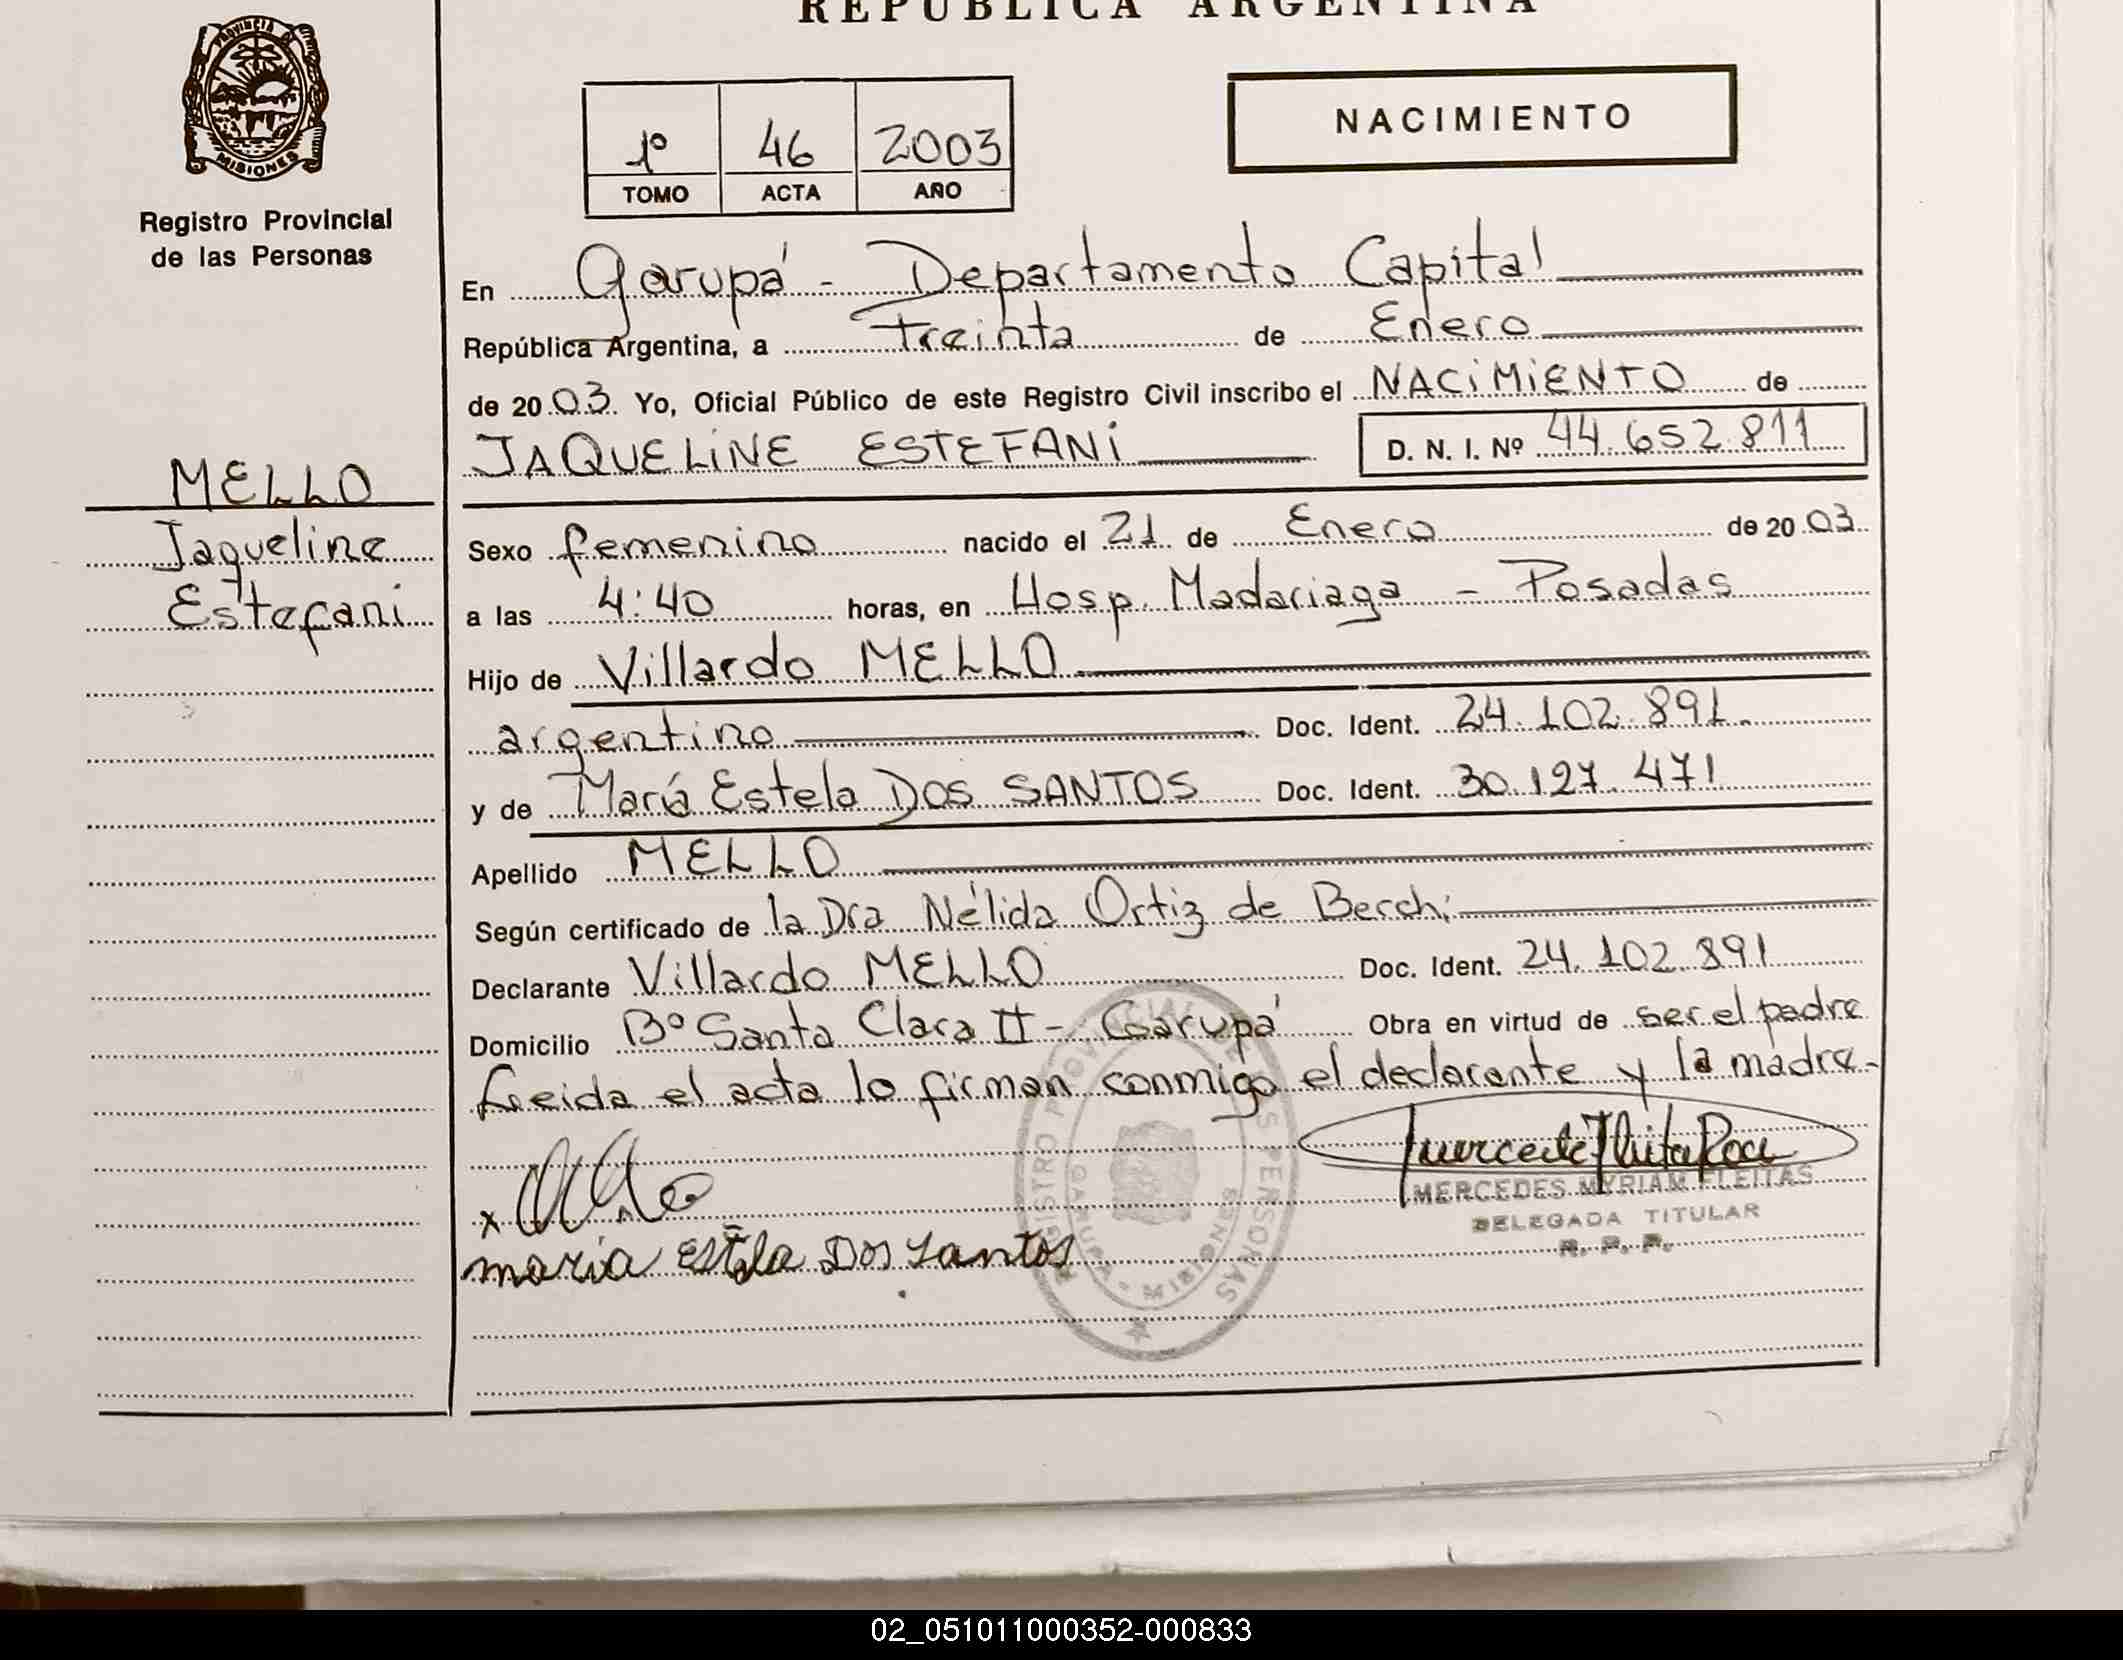 REPUBLICA ARGENTINA
PROVINCIA DE
MISIONES
Registro Provincial
de las Personas
1º 46 2003
TOMO ACTA AÑO
NACIMIENTO
En Garupá - Departamento Capital
República Argentina, a treinta de Enero
de 2003. Yo, Oficial Público de este Registro Civil inscribo el NACIMIENTO de
JAQUELINE ESTEFANI D. N. I. Nº 44.652.811
MELLO
Jaqueline
Estefani
Sexo femenino nacido el 21 de Enero de 2003.
a las 4:40 horas, en Hosp. Madariaga - Posadas
Hijo de Villardo MELLO
argentino Doc. Ident. 24.102.891.
y de María Estela DOS SANTOS Doc. Ident. 30.127.471
Apellido MELLO
Según certificado de la Dra Nélida Ortiz de Berchi
Declarante Villardo MELLO Doc. Ident. 24.102.891
Domicilio Bº Santa Clara II - Garupá Obra en virtud de ser el padre
Leida el acta lo firman conmigo el declarante y la madre-
x
maria Estela Dos santos
MERCEDES MYRIAM FLEITAS
DELEGADA TITULAR
R. P. P.
REGISTRO PROVINCIAL DE LAS PERSONAS
GARUPA - MISIONES
02_051011000352-000833